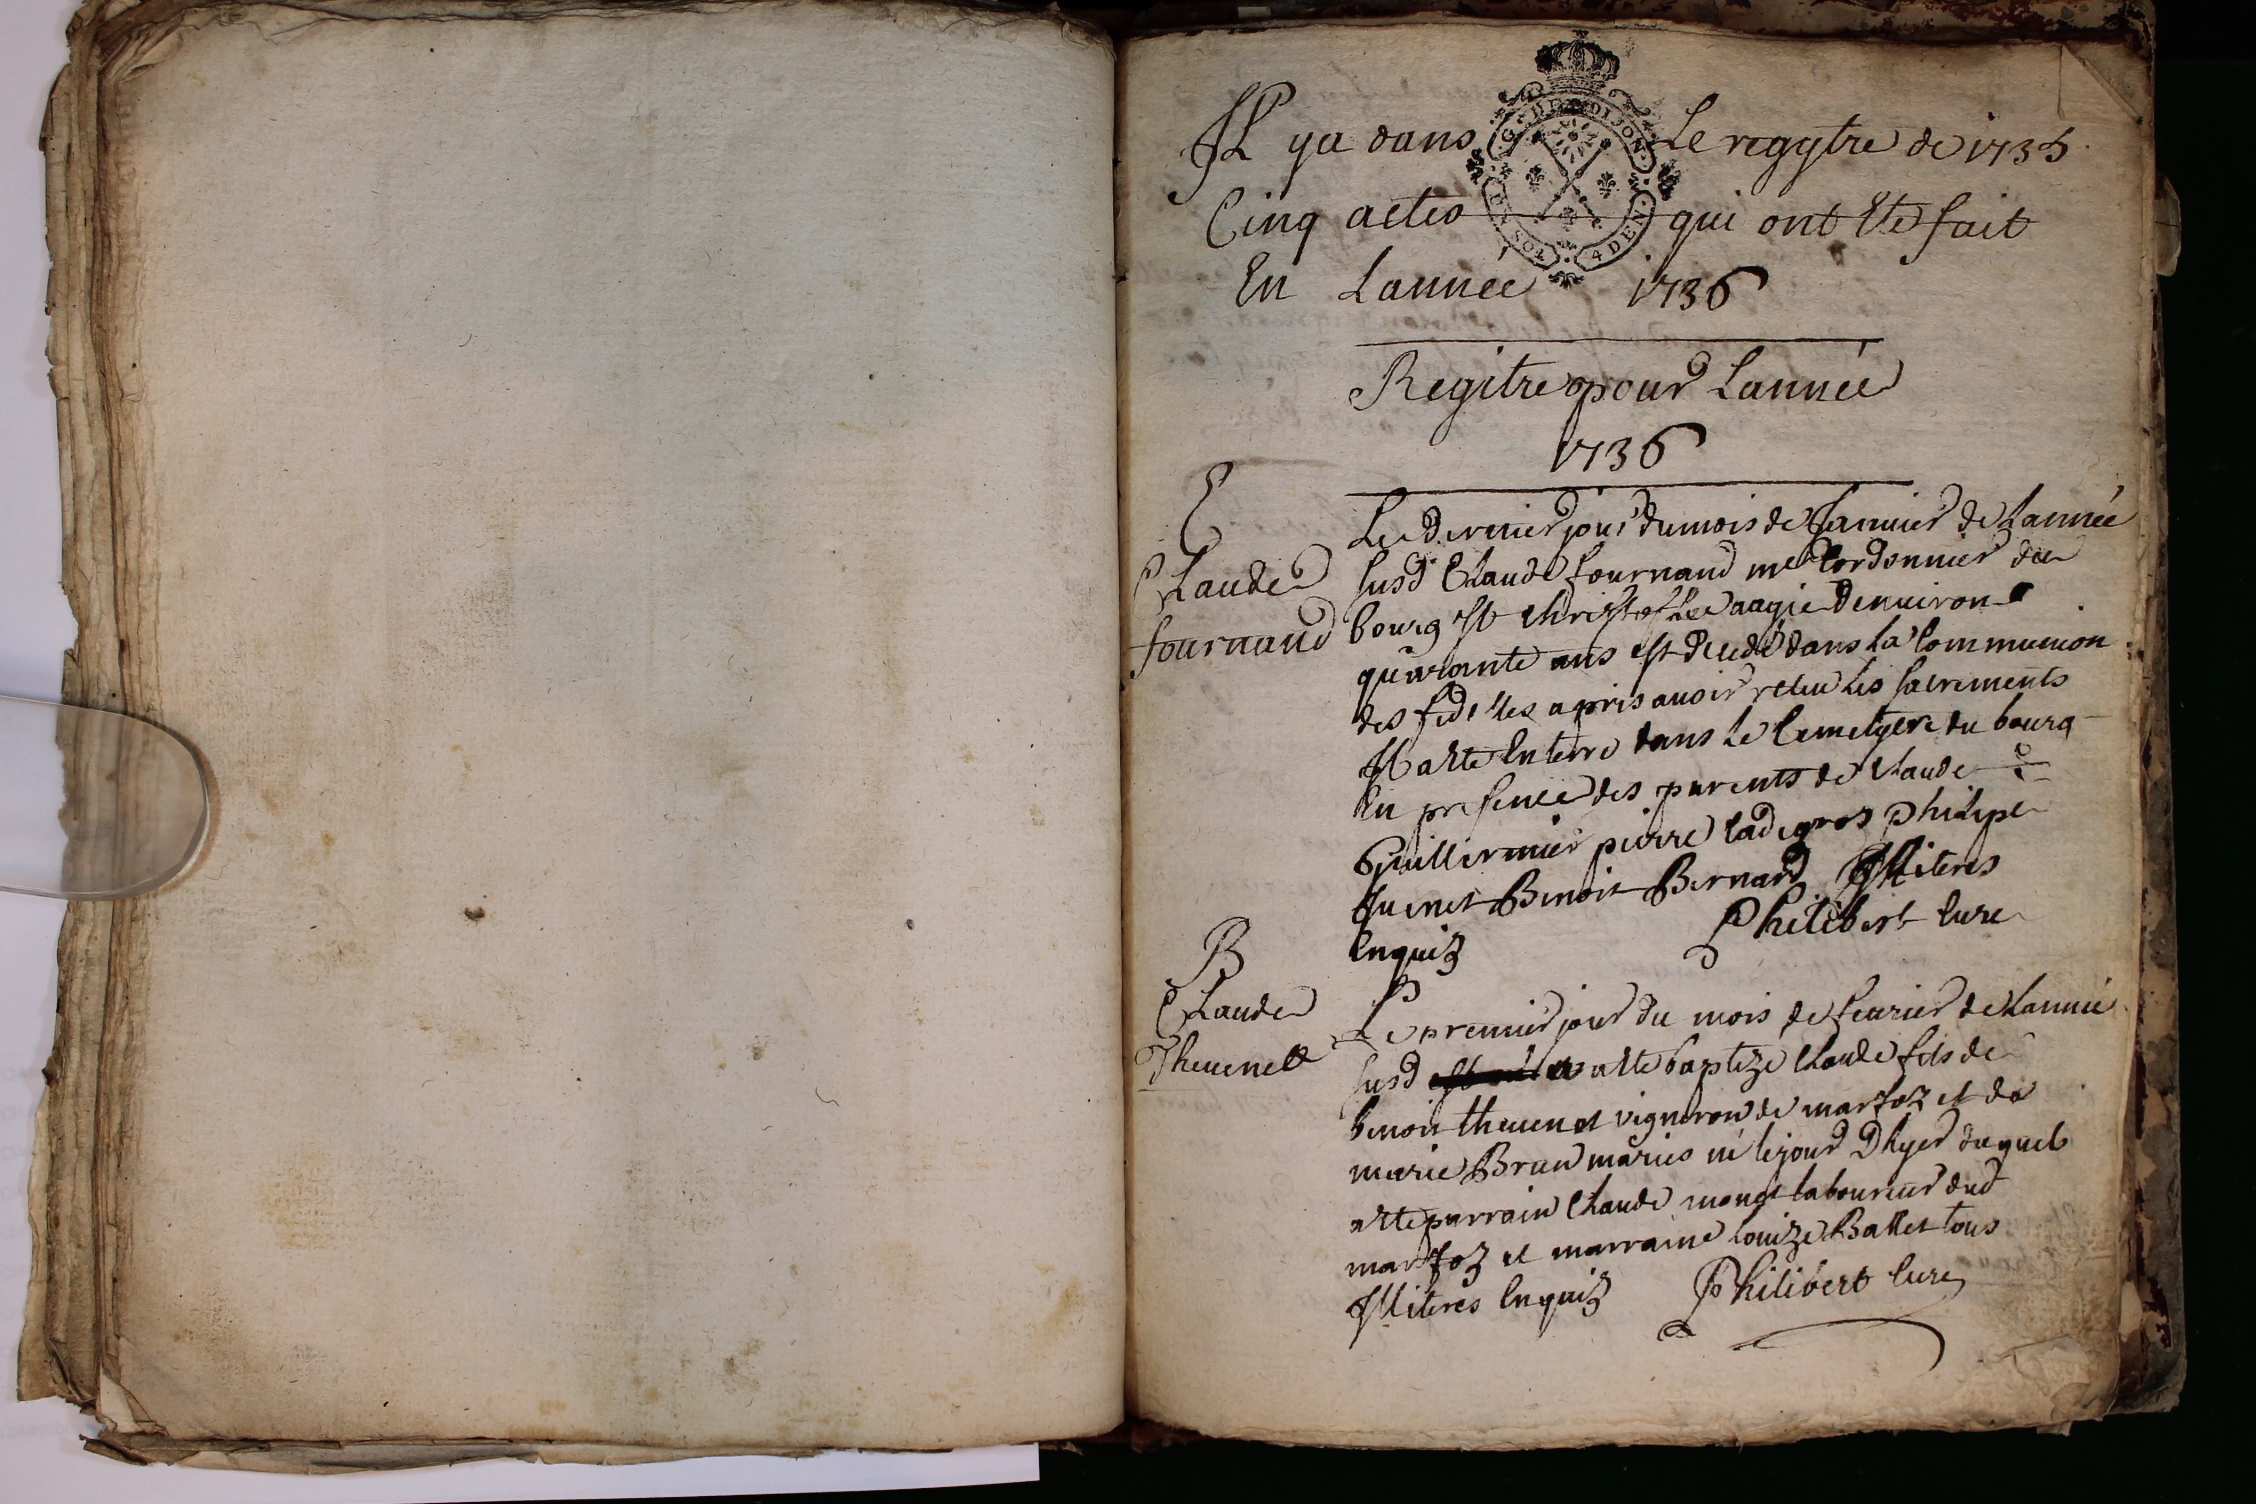 IL ya dans Le regytre de 1735
Cinq actes qui ont Ete fait
En Lannée 1736
G. DE DIJON
4 DEN
Regitre pour Lannée
1736
E
Claude
fournand
Le dernier jour du mois de Januier de Lannée
susd Claude fournand me Cordonnier du
bourg st Christofle aagie denuiron
quarante ans est decedé dans la Communion
des fidelles apris auoir receu les sacrements
Il a ete Enterre dans le Cemetyere du bourg
En presence des parents de Claude
Guillermier pierre ladegros philype
Juenet Benoit Bernard Illiteres
Enquis Philibert Cure
B
Claude
Theuenet
Le premier jour du mois de feurier de Lannée
susd a ete baptize Claude fils de
benoit theuenet vigneron de marzoz et de
marie Brun mariés né le jour Dhyer duquel
a ete parrain Claude monet laboureur dud
marzoz et marraine Louize Ballet tous
Illiteres Enquis Philibert Cure